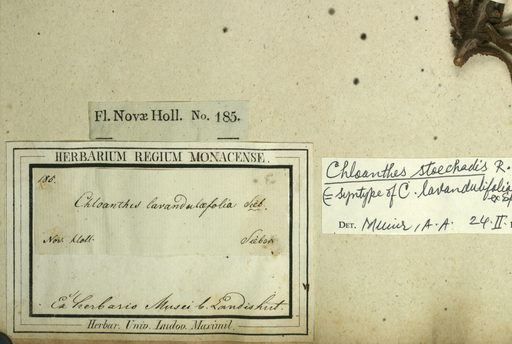 Fl. Novæ Holl. No. 185.
HERBARIUM REGIUM MONACENSE.
185.
Chloanthes lavandulæfolia Sieb.
Nov. Holl. Sieber
Ex herbario Musei b. Landishut.
Herbar. Univ. Ludov. Maximil.
Chloanthes stoechadis R.
(= syntype of C. lavandulifolia
DET. Munir, A.A. 24.II.